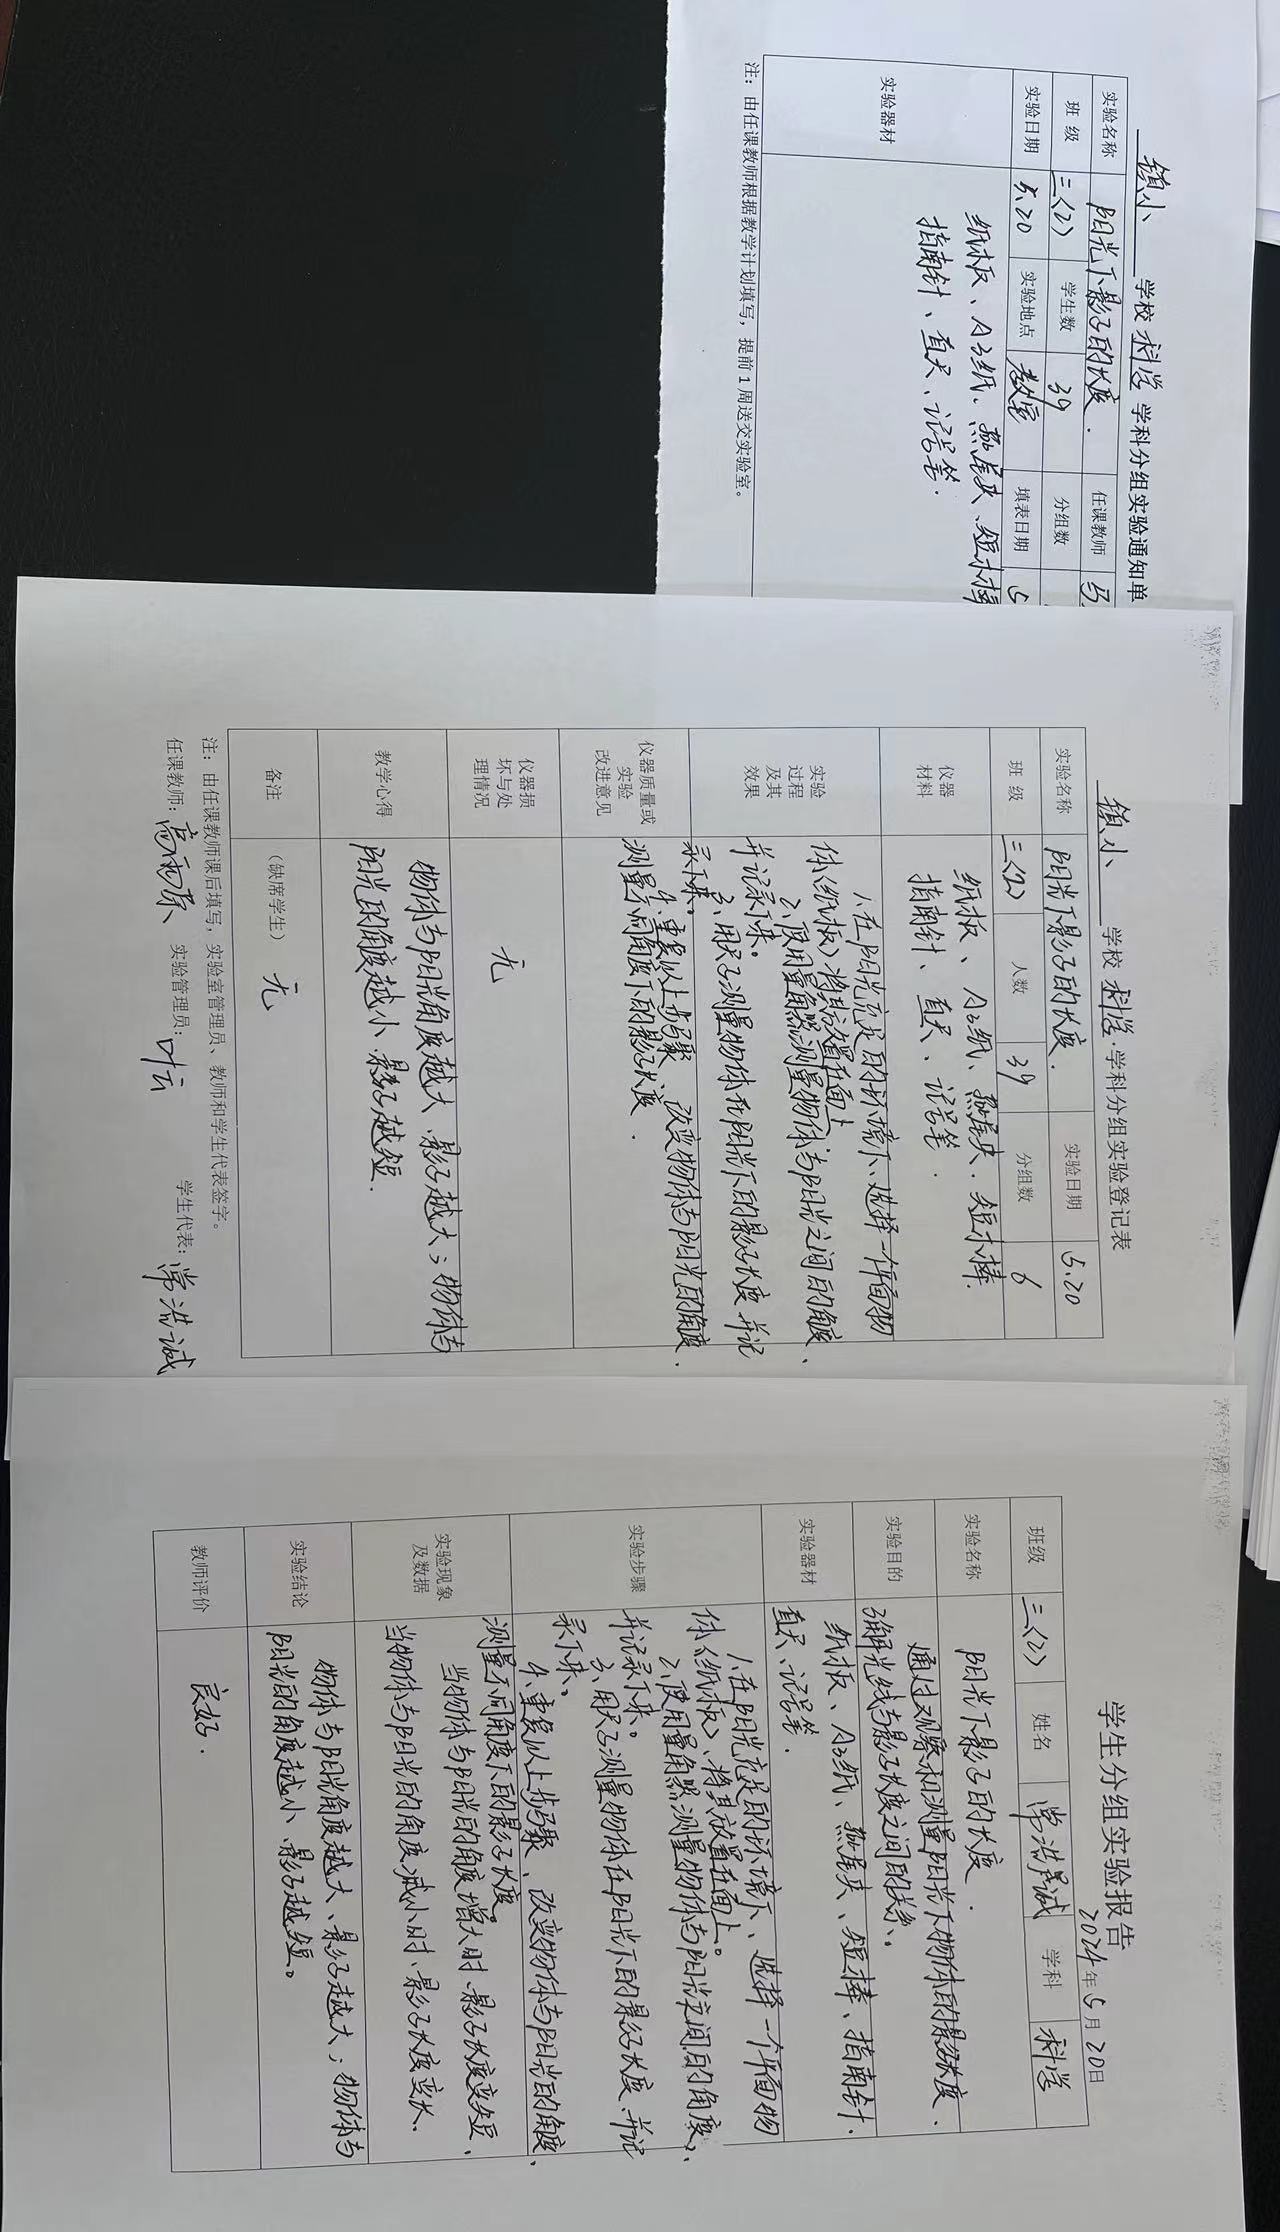 镇小 学校 科学 学科分组实验通知单
实验名称 阳光下影子的长度. 任课教师
班 级 三(2) 学生数 39 分组数
实验日期 5.20 实验地点 教室 填表日期 5
实验器材
纸板、A3纸、燕尾夹、短木棒
指南针、直尺、记号笔.
注：由任课教师根据教学计划填写，提前1周送交实验室。
镇小 学校 科学 学科分组实验登记表
实验名称 阳光下影子的长度. 实验日期 5.20
班 级 三(2) 人数 39 分组数 6
仪器
材料
纸板、A3纸、燕尾夹、短木棒.
指南针、直尺、记号笔.
实验
过程
及其
效果
1.在阳光充足的环境下、选择一个平面物
体(纸板)将其放置在面上
2.使用量角器测量物体与阳光之间的角度、
并记录下来。
3.用尺子测量物体在阳光下的影子长度、并记
录下来。
4.重复以上步骤、改变物体与阳光的角度、
测量不同角度下的影子长度.
仪器质量或
实验
改进意见
仪器损
坏与处
理情况
无
教学心得
物体与阳光角度越大、影子越大；物体与
阳光的角度越小、影子越短.
备注 (缺席学生) 无
注：由任课教师课后填写，实验室管理员、教师和学生代表签字。
任课教师: 实验管理员: 叶云 学生代表: 常浩诚
学生分组实验报告
2024年5月20日
班级 三(2) 姓名 常浩诚 学科 科学
实验名称 阳光下影子的长度.
实验目的
通过观察和测量阳光下物体的影子长度、
理解光线与影子长度之间的关系。
实验器材
纸板、A3纸、燕尾夹、短棒、指南针.
直尺、记号笔.
实验步骤
1.在阳光充足的环境下、选择一个平面物
体(纸板)、将其放置在面上。
2.使用量角器测量物体与阳光之间的角度、
并记录下来。
3.用尺子测量物体在阳光下的影子长度、并记
录下来。
4.重复以上步骤、改变物体与阳光的角度、
测量不同角度下的影子长度。
实验现象
及数据
当物体与阳光的角度增大时、影子长度变短、
当物体与阳光的角度减小时、影子长度变长.
实验结论
物体与阳光角度越大、影子越大；物体与
阳光的角度越小、影子越短。
教师评价 良好.